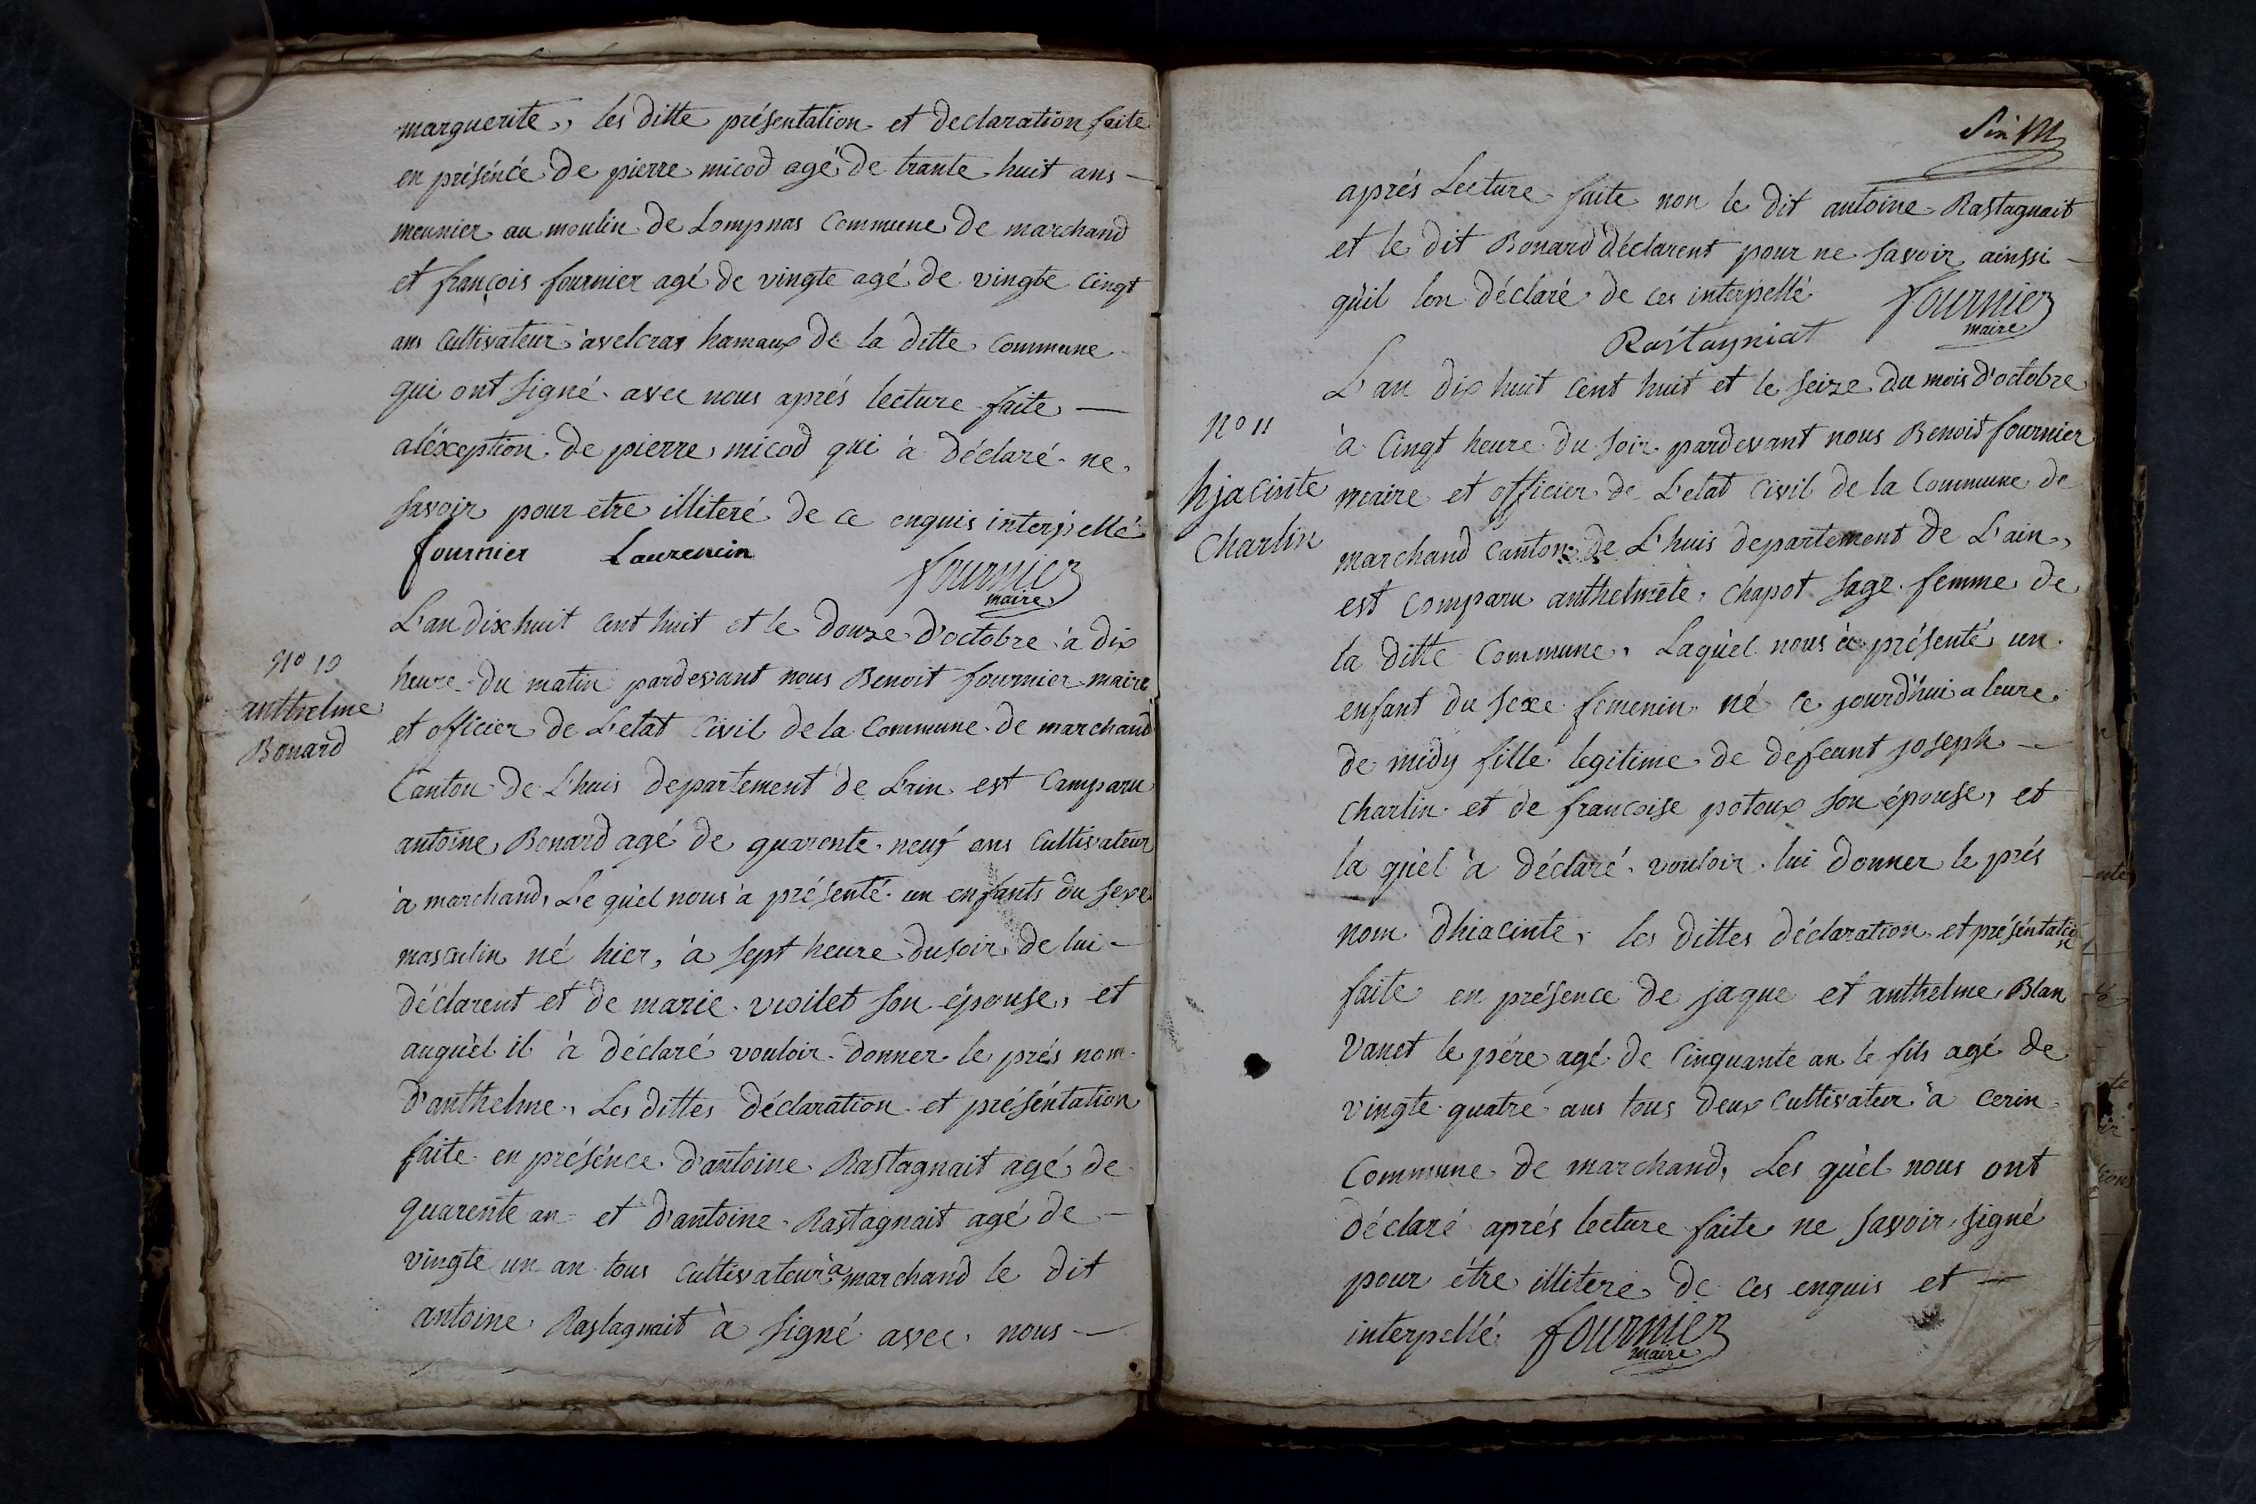 marguerite, les ditte présentation et declaration faite
en présénce de pierre micod agé de trante huit ans —
meunier au moulin de Lompnas Commune de marchand
et françois fournier agé de vingte agé de vingte Cingt
ans Cultivateur à velcras hamaux de la ditte Commune
qui ont signé avec nous aprés lecture faite —
aléxception de pierre micod qui à déclaré ne
savoir pour etre illiteré de ce enquis interpellé
fournier Laurencin
fournier
maire
N° 10
anthelme
Bonard
L'an dixhuit cent huit et le douze d'octobre à dix
heure du matin pardevant nous Benoit fournier maire
et officier de L'etat Civil de la Commune de marchand
Canton de L'huis departement de Lain est Comparu
antoine Bonard agé de quarente neuf ans Cultivateur
à marchand, Le quèl nous à présenté un enfants du sexe
masculin né hier, à sept heure du soir de lui —
déclarent et de marie violet son épouse, et
auquèl il à déclaré vouloir donner le prés nom
d'anthelme, Les dittes déclaration et préséntation
faite en présénce d'antoine Rastagnait agé de
quarente an et d'antoine Rastagnait agé de —
vingte un an tous Cultivateur à marchand le dit
antoine Rastagnait à signé avec nous —
aprés Lecture faite non le dit antoine Rastagnait
et le dit Bonard déclarent pour ne savoir ainssi —
qùil lon déclaré de ces interpellé
fournier
maire
Rastayniat
N° 11
hjacinte
Charlin
L'an dix huit Cent huit et le seize du mois d'octobre
à Cingt heure du soir pardevant nous Benoit fournier
maire et officier de L'etat Civil de la Commune de
marchand Canton de L'huis departement de L'ain,
est Comparu anthelmete Chapot sage femme de
la ditte Commune, Laquèl nous à présenté un
enfant du sexe femenin né ce jourd'hui a leure
de midy fille legitime de defeunt joseph —
Charlin et de francoise potoux son épouse, et
la quèl à déclaré vouloir lui donner le prés
nom dhiacinte, les dittes déclaration et préséntation
faite en présence de jaque et anthelme Blan
Vanet le pére agé de Cinquante an le fils agé de
vingte quatre ans tous deux Cultivateur à Cerin
Commune de marchand, Les quèl nous ont
déclaré aprés lecture faite ne savoir signé
pour étre illiteré de ces enquis et —
interpellé
fournier
maire